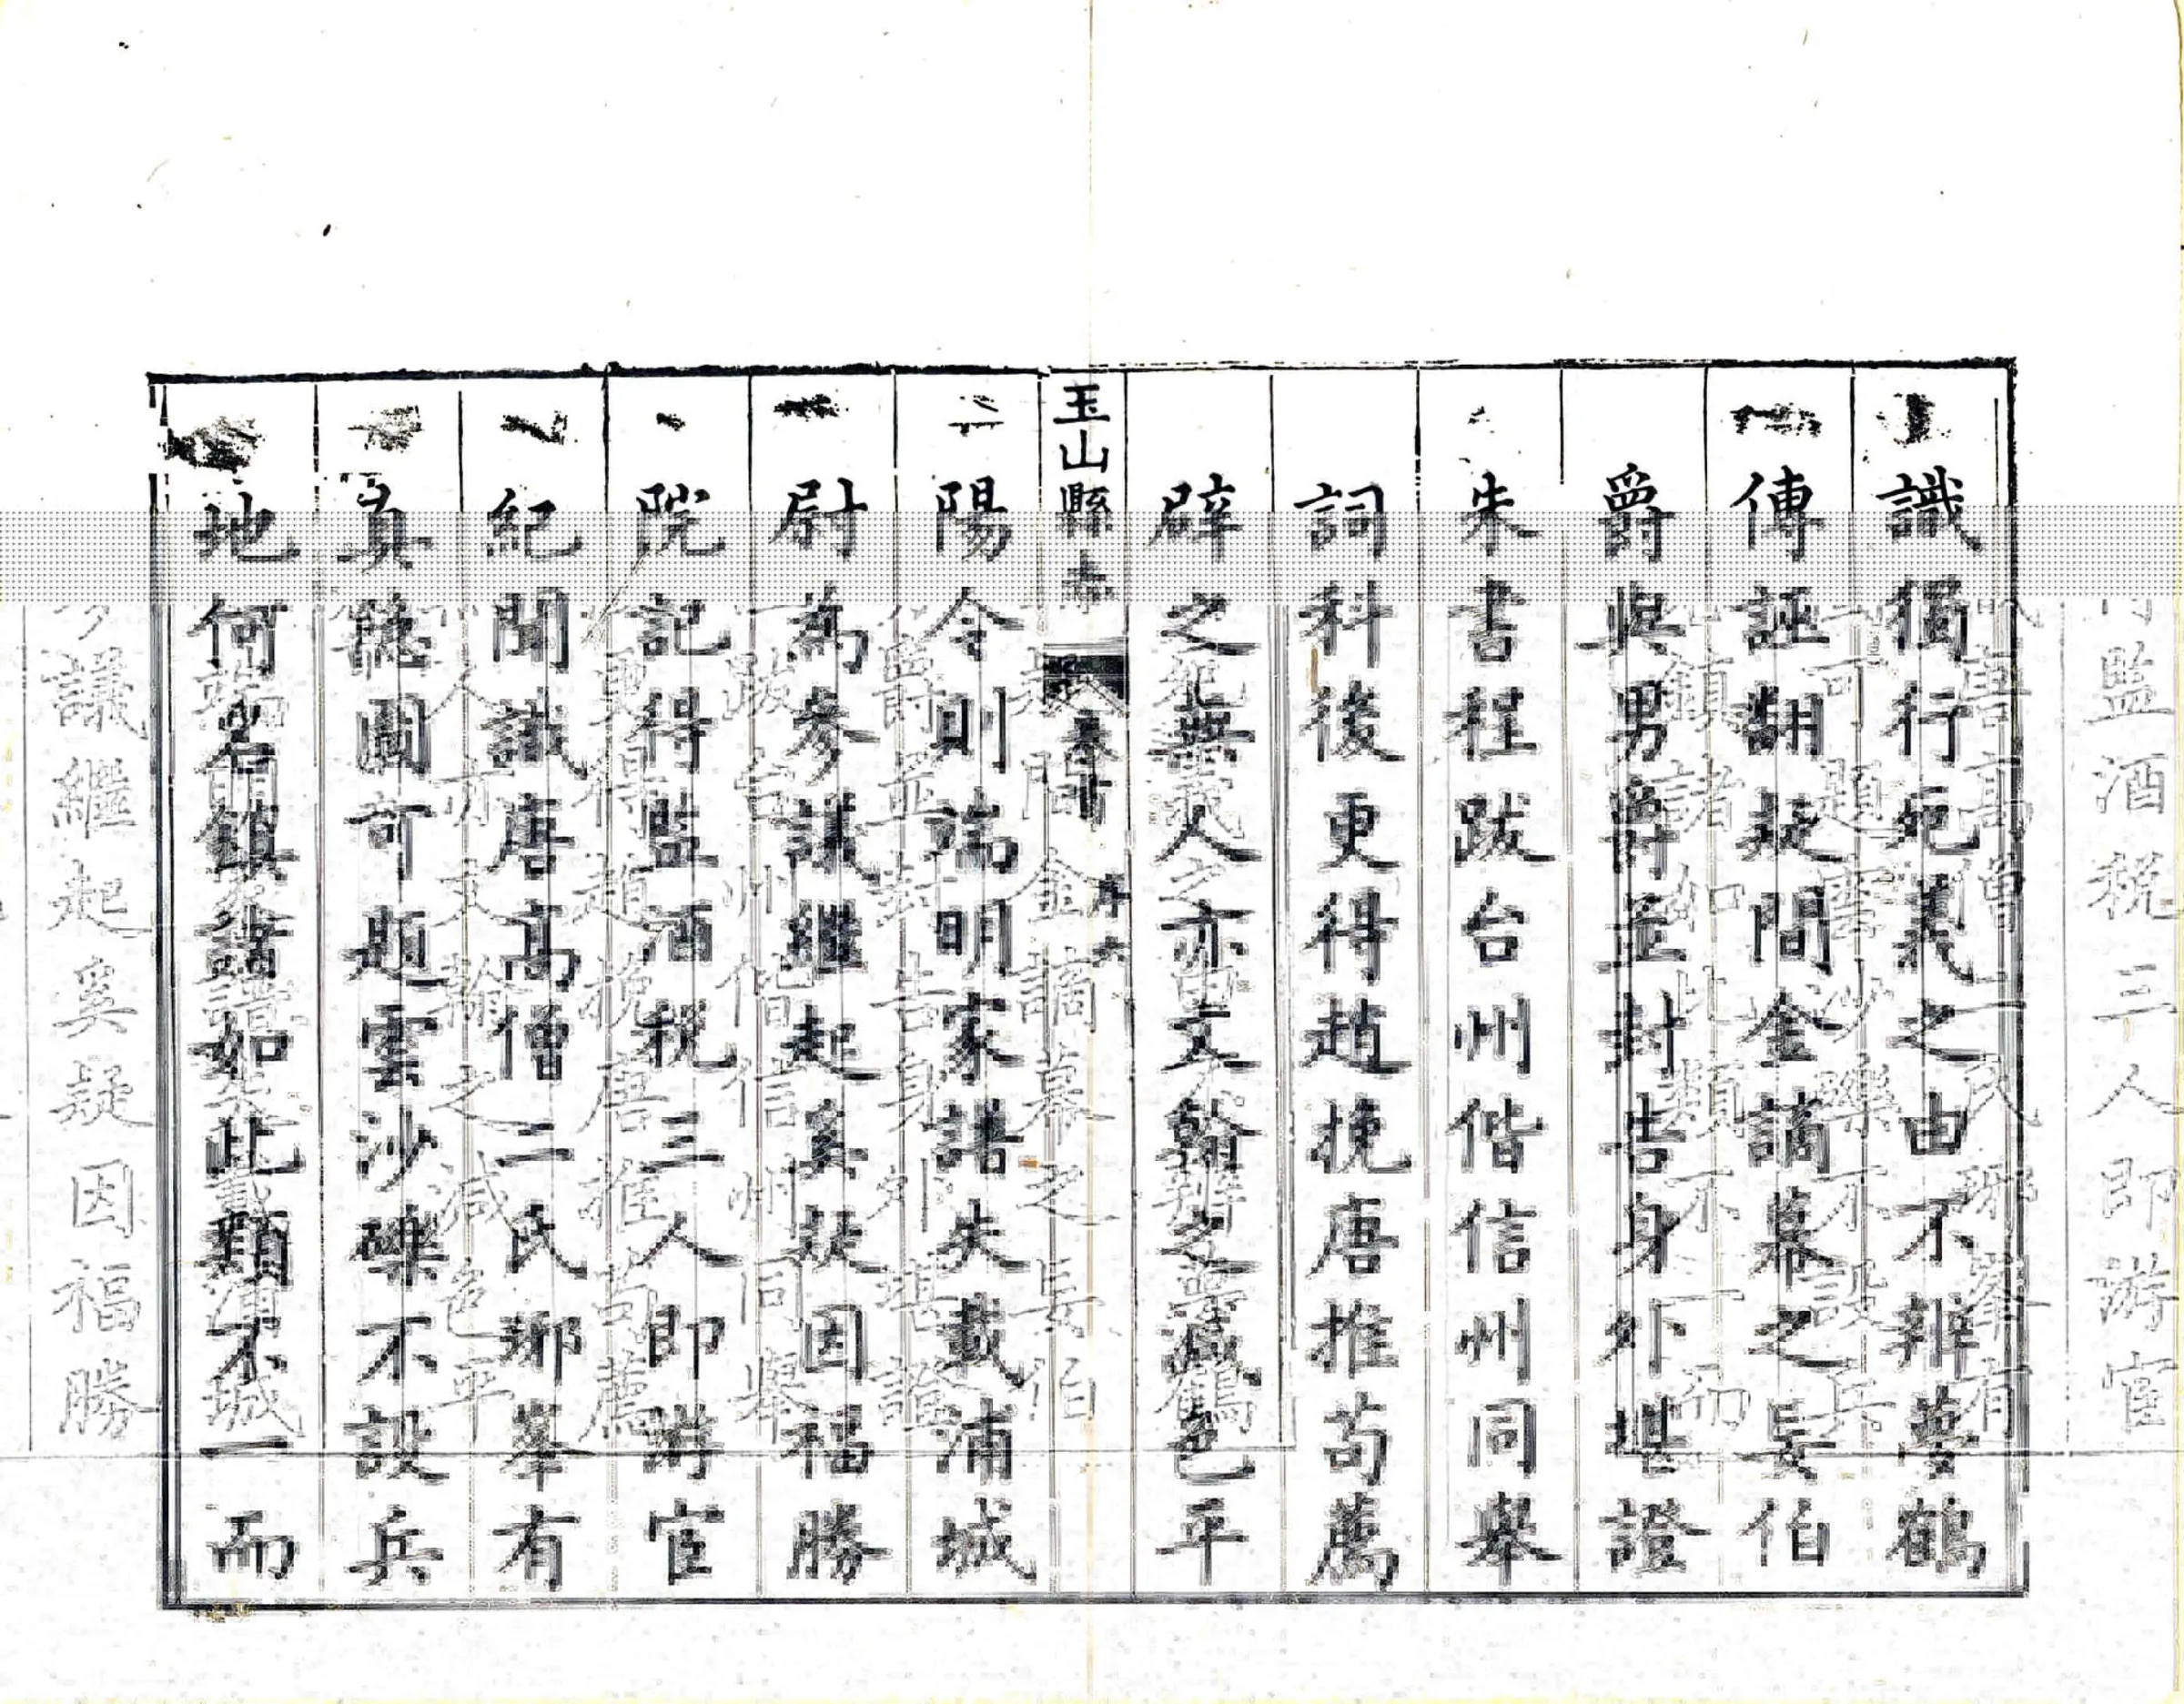 識獨行死義之由不辨夢鶴
傳誣翻疑間金謫幕之妄伯
爵與男爵並封告身外堪證
朱書程跋台州偕信州同舉
詞科後更得趙挽唐推苟薦
辟之無人亦文翰之減色平
玉山縣志 卷首 序 六
陽令則端明家譜失載浦城
尉為參議繼起奚疑因福勝
院記得監酒稅三人即游宦
紀聞識唐高僧二氏瑯峯有
真隱圖可題雲沙礫不設兵
地何名鎮諸如此類不一而